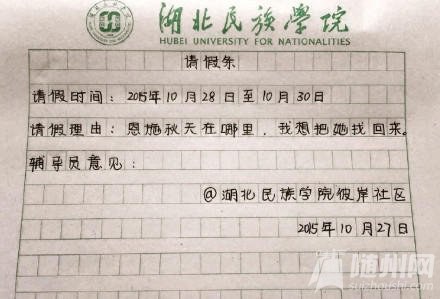 湖北民族学院
HUBEI UNIVERSITY FOR NATIONALITIES
请假条
请假时间：2015年10月28日至10月30日
请假理由：恩施秋天在哪里，我想把她找回来。
辅导员意见：
@湖北民族学院彼岸社区
2015年10月27日
随州网
suizhoushi.com